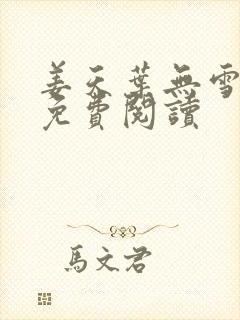 姜天葉無雪
免費閱讀
馬文君